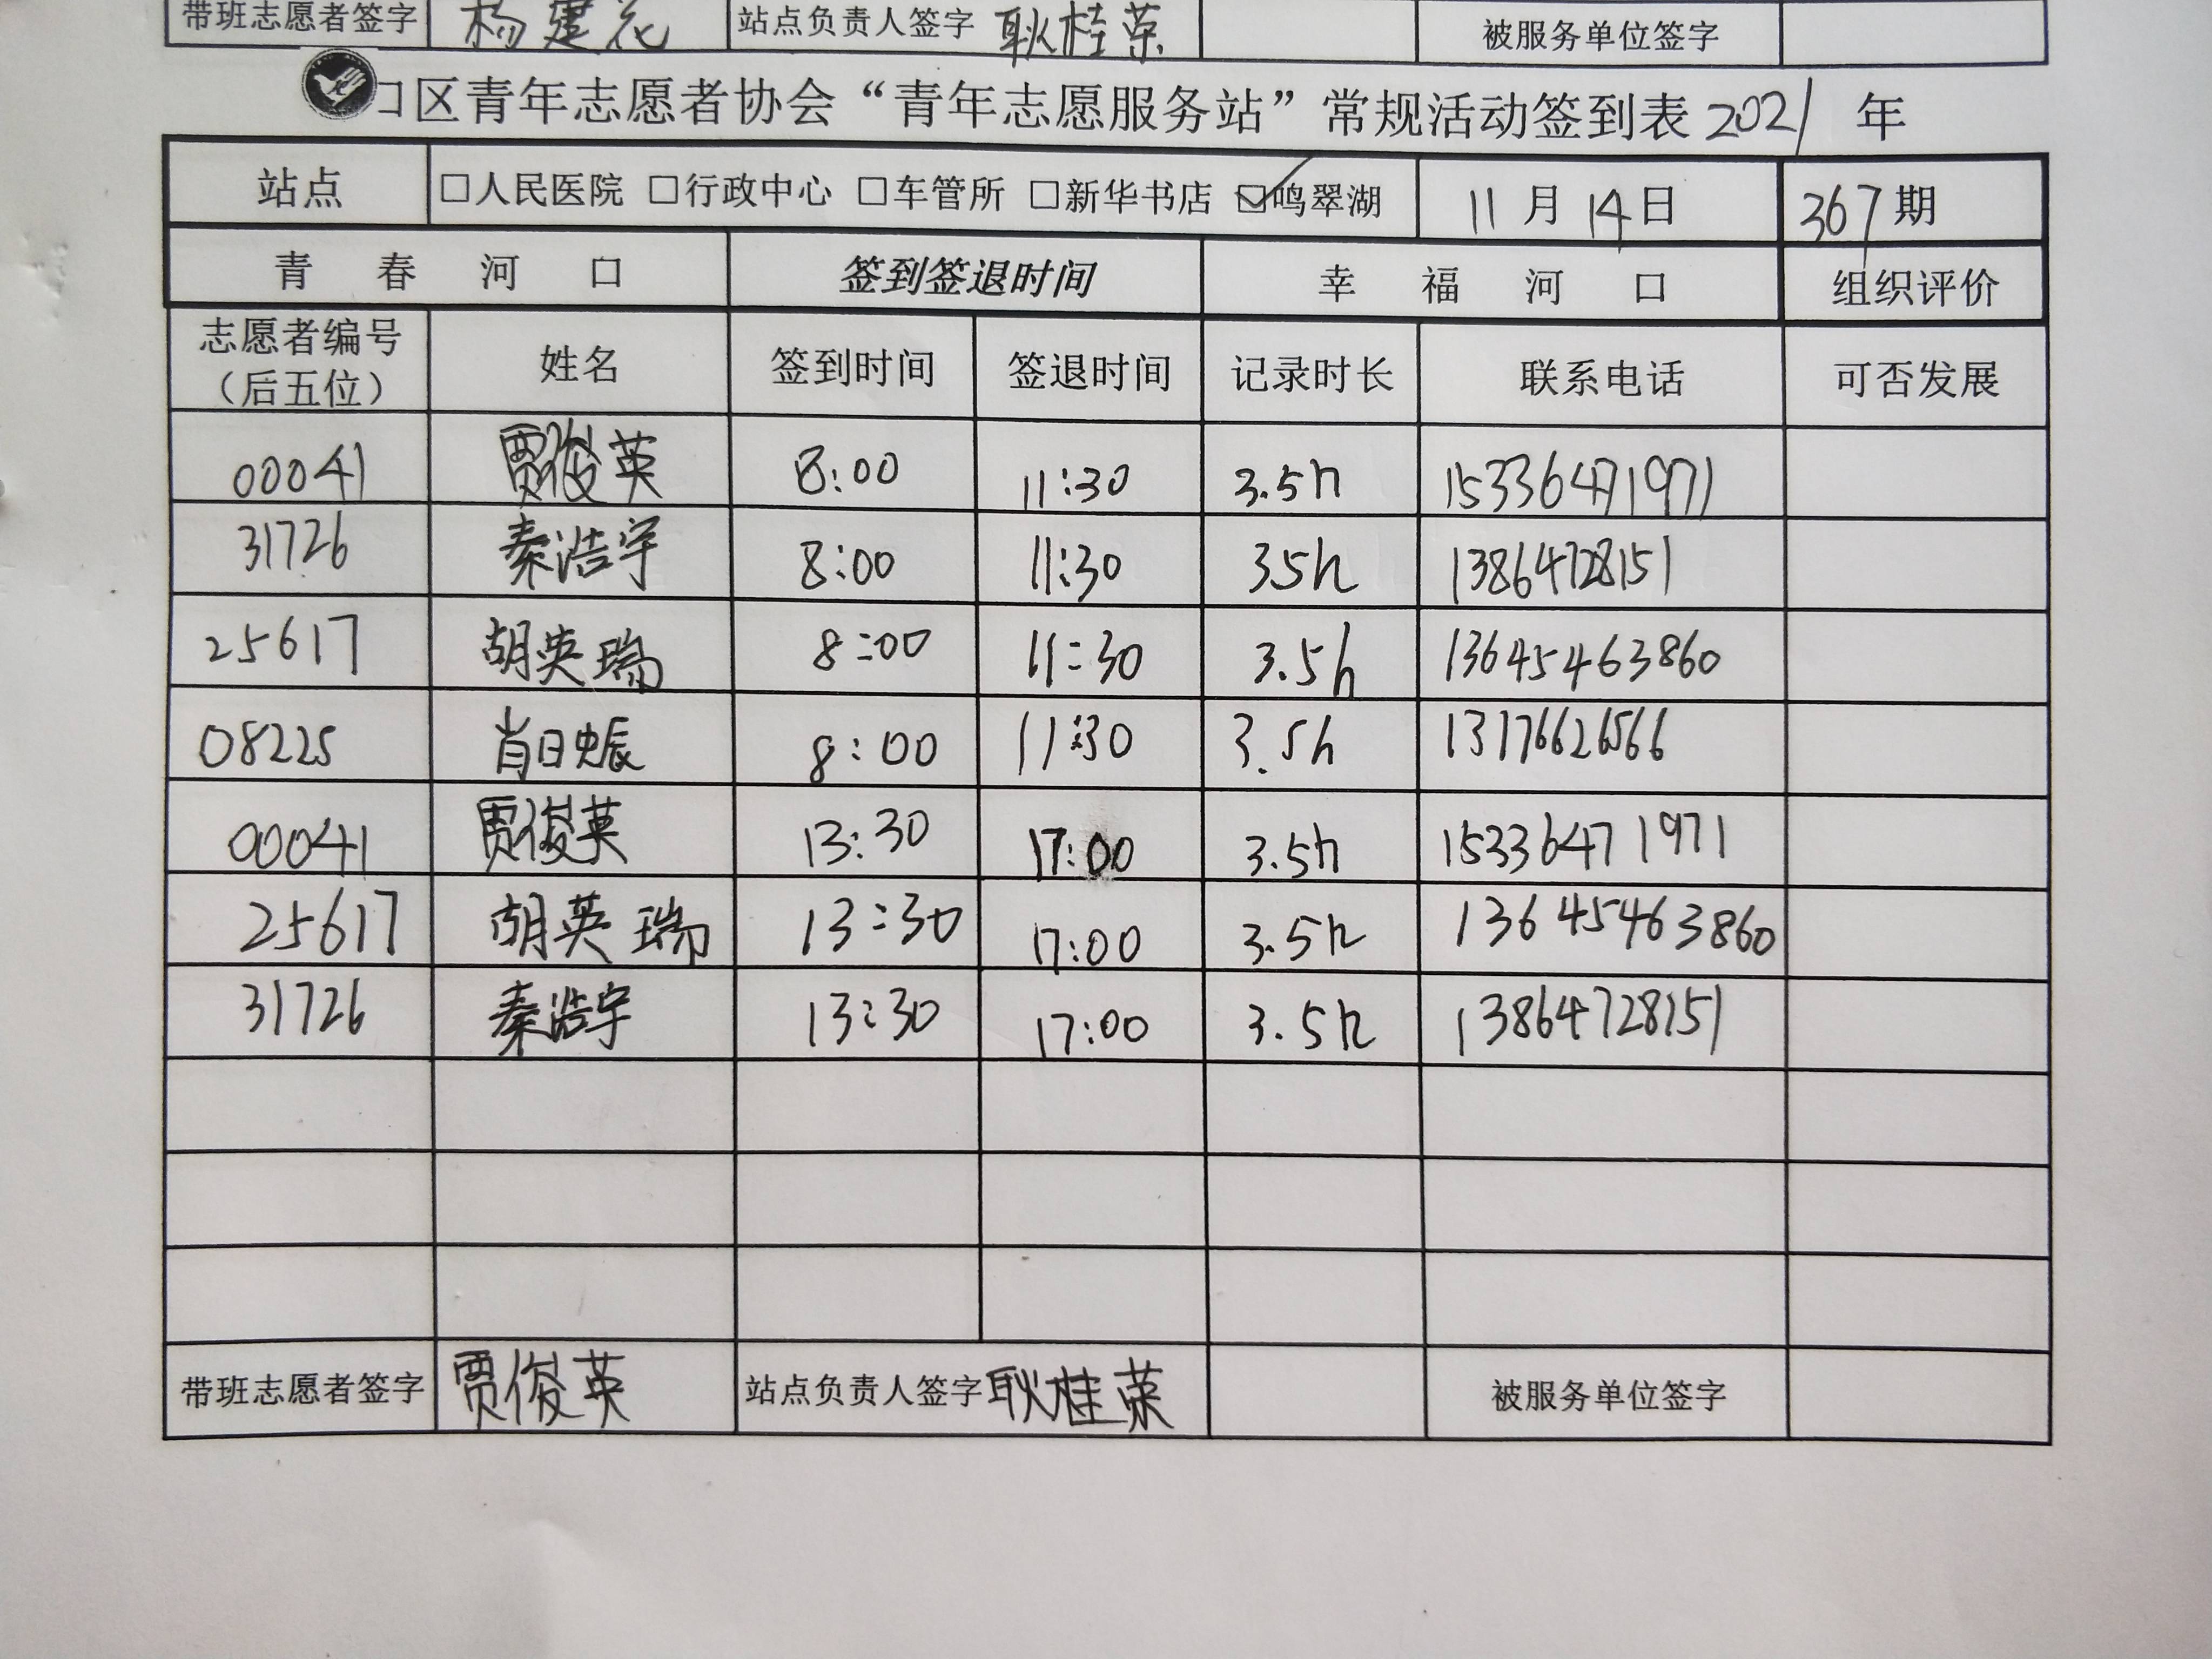 带班志愿者签字 杨建花 站点负责人签字 耿桂荣 被服务单位签字
口区青年志愿者协会“青年志愿服务站”常规活动签到表 2021 年
站点 □人民医院 □行政中心 □车管所 □新华书店 ☑鸣翠湖 11月14日 367期
青春河口 签到签退时间 幸福河口 组织评价
志愿者编号（后五位） 姓名 签到时间 签退时间 记录时长 联系电话 可否发展
00041 贾俊英 8:00 11:30 3.5h 15336471971
31726 秦浩宇 8:00 11:30 3.5h 13864728151
25617 胡英瑞 8:00 11:30 3.5h 13645463860
08225 肖日 8:00 11:30 3.5h 13176626566
00041 贾俊英 13:30 17:00 3.5h 15336471971
25617 胡英瑞 13:30 17:00 3.5h 13645463860
31726 秦浩宇 13:30 17:00 3.5h 13864728151
带班志愿者签字 贾俊英 站点负责人签字 耿桂荣 被服务单位签字